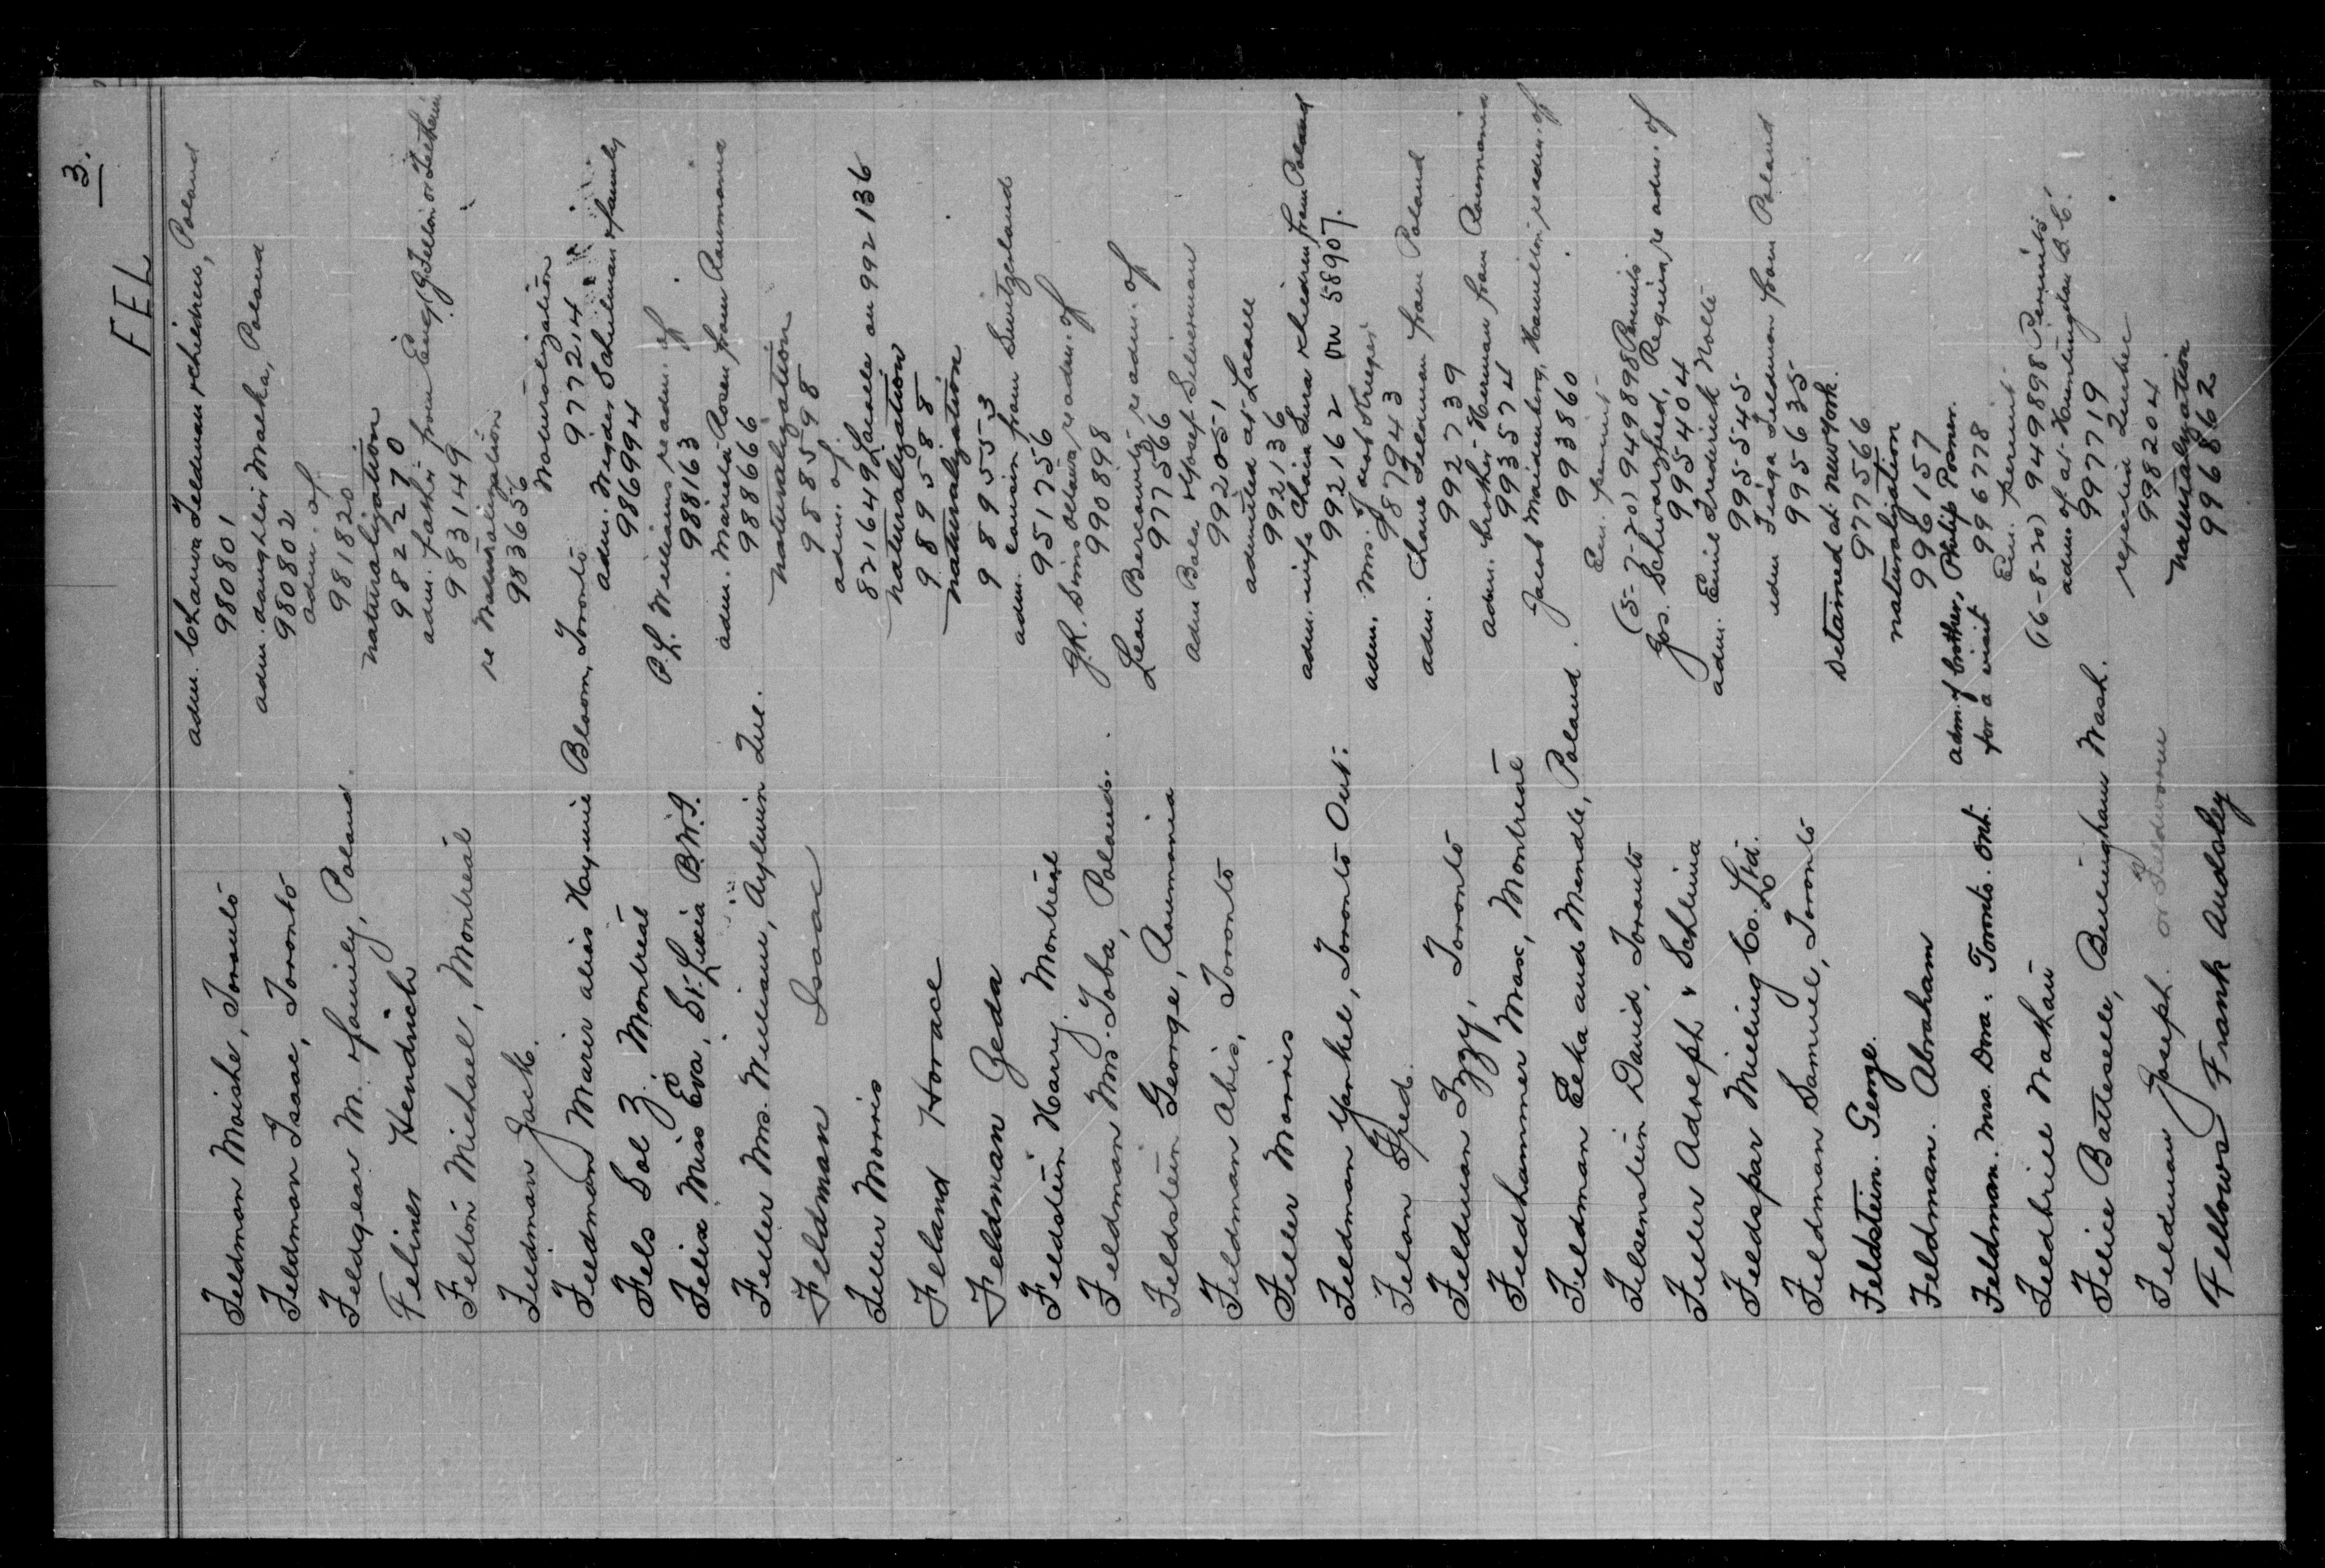 3.
FEL
Feldman Moishe, Toronto adm. Chawa Feldman & children, Poland 980801
Feldman Isaac, Toronto adm. daughter Malka, Poland 980802
Feldgear M. & family, Poland. adm. of 981820
Feliner Hendrich naturalization 982270
Felton Michael, Montreal adm. father from Eng (J. Felton or 983149
Feldman Jack. re Naturalization 983656
Feldman Marie alias Haynie Bloom, Toronto Naturalization 977214
Fels Sol Z. Montreal adm. Mendes Schulman & family 986994
Felix Miss Eva, St. Lucia B.W.I. P.L. Williams re adm. of 988163
Feller Mrs. William, Aylwin Que. adm. Marcela Rosen from Roumania 988666
Feldman Isaac naturalization 988598
Feller Morris adm. of 821649 Lacalle on 992136
Feland Horace naturalization 989588
Feldman Zeda naturalization 989553
Feldstein Harry. Montreal adm. cousin from Switzerland 951756
Feldman Mrs. Toba, Poland. J.R. Sims Ottawa, re adm. of 990898
Feldstein George, Roumania Leon Bercovitz re adm. of 977566
Feldman Abis, Toronto adm Bala & Yosef Silverman 992051
Feller Morris admitted at Lacalle 992136
Feldman Yankel, Toronto Ont. adm. wife Chaia Sura & children from Poland 992162 on 58907.
Felon Fred. adm. Mrs. J. and 987943
Feldman Izzy, Toronto adm. Chana Feldman from Poland 992739
Feldhammer Max, Montreal adm. brother Herman from Roumania 993574
Feldman Elka and Mendle, Poland. Jacob Maidenberg, Hamilton re adm. of 993860
Felsenstein David, Toronto Em. permit (5-7-20) 949898 Permits
Feller Adolph & Schlima Jos. Schwarzfied, Regina, re adm. of 995404
Feldspar Milling Co. Ltd. adm. Emil Fredrick Nolte 995545
Feldman Samuel, Toronto adm Fiaga Feldman from Poland 995635
Feldstein. George. Detained at New York. 977566
Feldman. Abraham naturalization 996157
Feldman. Mrs. Dora. Toronto. Ont. adm. of brother, Philip Posner. for a visit 996778
Feldbrill Nathan Em. permit (16-8-20) 949898 Permits
Felice Battesele, Bellingham Wash. adm. of at Huntingdon B.C. 997719
Feldman Joseph. or rejected Quebec 998204
Fellows Frank Audsley Naturalization 996862